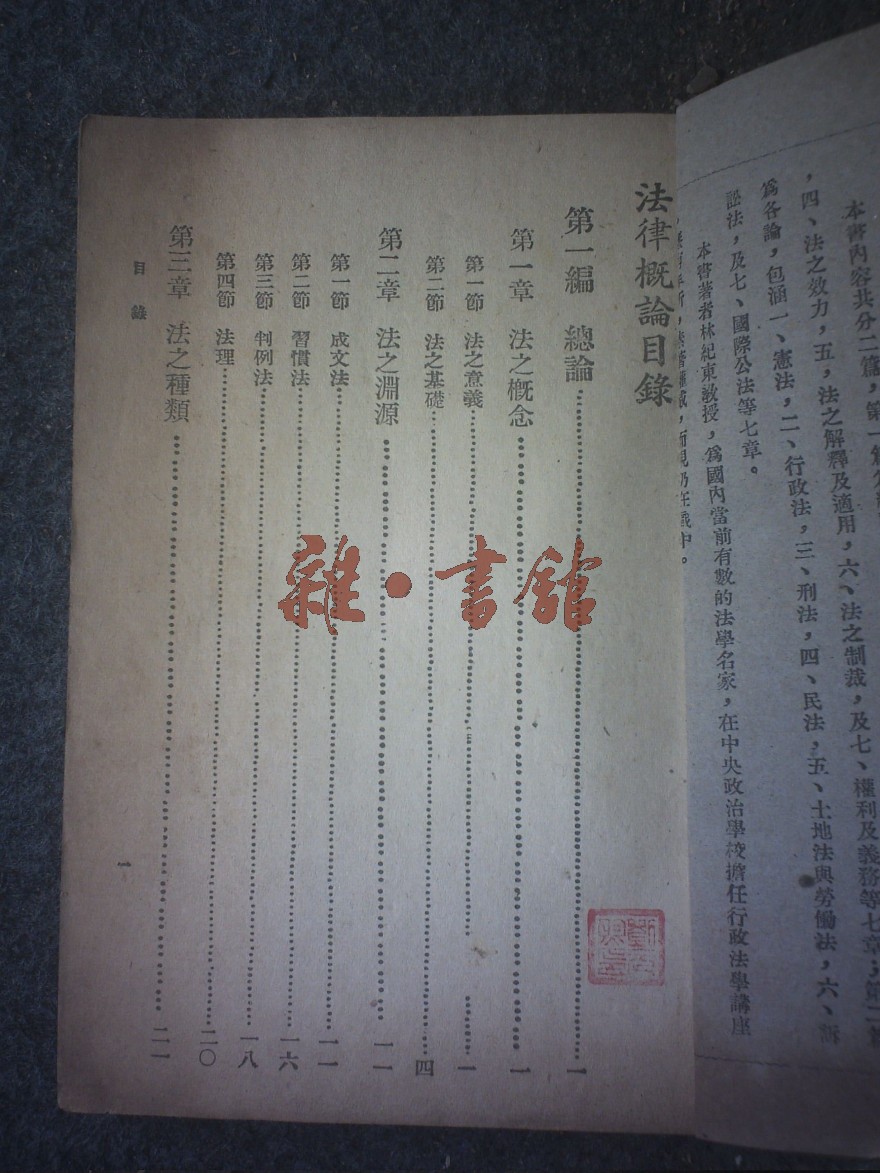 本書內容共分二篇，第一篇
，四、法之效力，五，法之解釋及適用，六、法之制裁，及七、權利及義務等七章；第二
為各論，包涵一、憲法，二、行政法，三、刑法，四、民法，五、土地法與勞働法，六、訴
訟法，及七、國際公法等七章。
本書著者林紀東敎授，為國內當前有數的法學名家，在中央政治學校擔任行政法學講座
，而現仍在
中。
法律概論目錄
第一編 總論……一
第一章 法之概念……一
第一節 法之意義……一
第二節 法之基礎……四
第二章 法之淵源……一一
第一節 成文法……一一
第二節 習慣法……一六
第三節 判例法……一八
第四節 法理……二〇
第三章 法之種類……二一
目錄
一
雜·書館